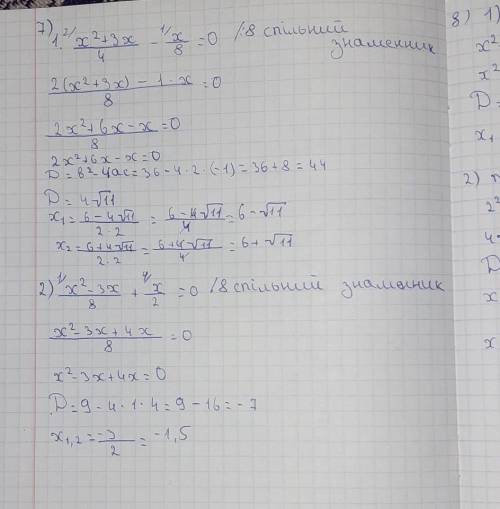 7) 1. ²⁄ x²+3x / 4 - ¹⁄ x / 8 = 0 /·8 спільний
знаменник
2(x²+3x) - 1·x / 8 = 0
2x²+6x-x / 8 = 0
2x²+6x-x=0
D = b²-4ac = 36 - 4·2·(-1) = 36+8 = 44
D = 4√11
x₁ = 6-4√11 / 2·2 = 6-4√11 / 4 = 6-√11
x₂ = 6+4√11 / 2·2 = 6+4√11 / 4 = 6+√11
2) ¹⁄ x²-3x / 8 + ⁴⁄ x / 2 = 0 /8 спільний знаменник
x²-3x+4x / 8 = 0
x²-3x+4x=0
D = 9-4·1·4 = 9-16 = -7
x₁,₂ = -3 / 2 = -1,5
8) 1)
x²
x²
D=
x₁
2)
2²
4
D
x
x